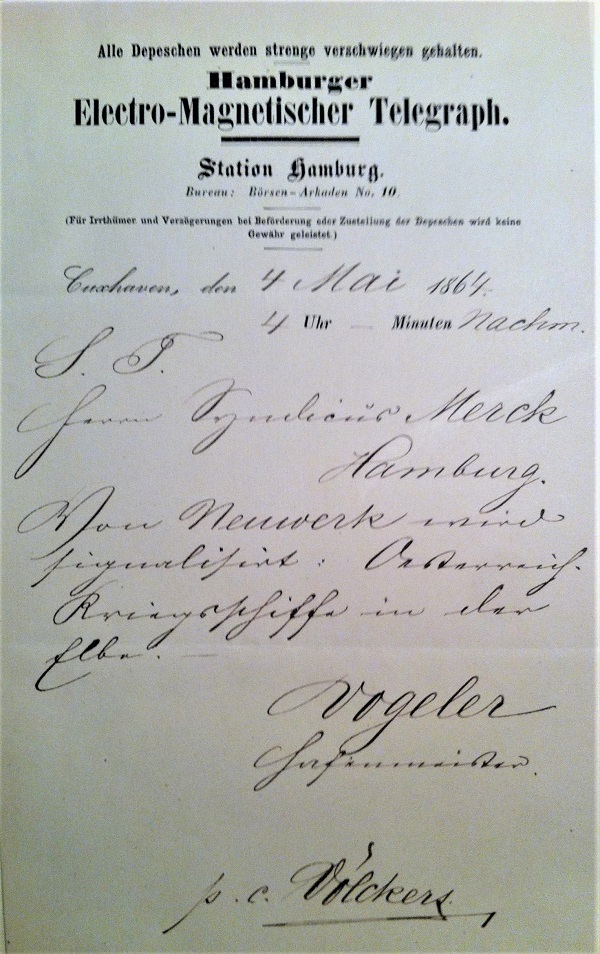 Alle Depeschen werden strenge verschwiegen gehalten.
Hamburger
Electro-Magnetischer Telegraph.
Station Hamburg.
Bureau: Börsen-Arkaden No. 10.
(Für Irrthümer und Verzögerungen bei Beförderung oder Zustellung der Depeschen wird keine
Gewähr geleistet.)
Cuxhaven, den 4 Mai 1864.
4 Uhr — Minuten Nachm.
S. T.
Herrn Syndicus Merck
Hamburg.
Von Neuwerk wird
signalisirt: Oesterreich.
Kriegsschiffe in der
Elbe. —
Vogeler
Hafenmeister.
p. c. Völckers